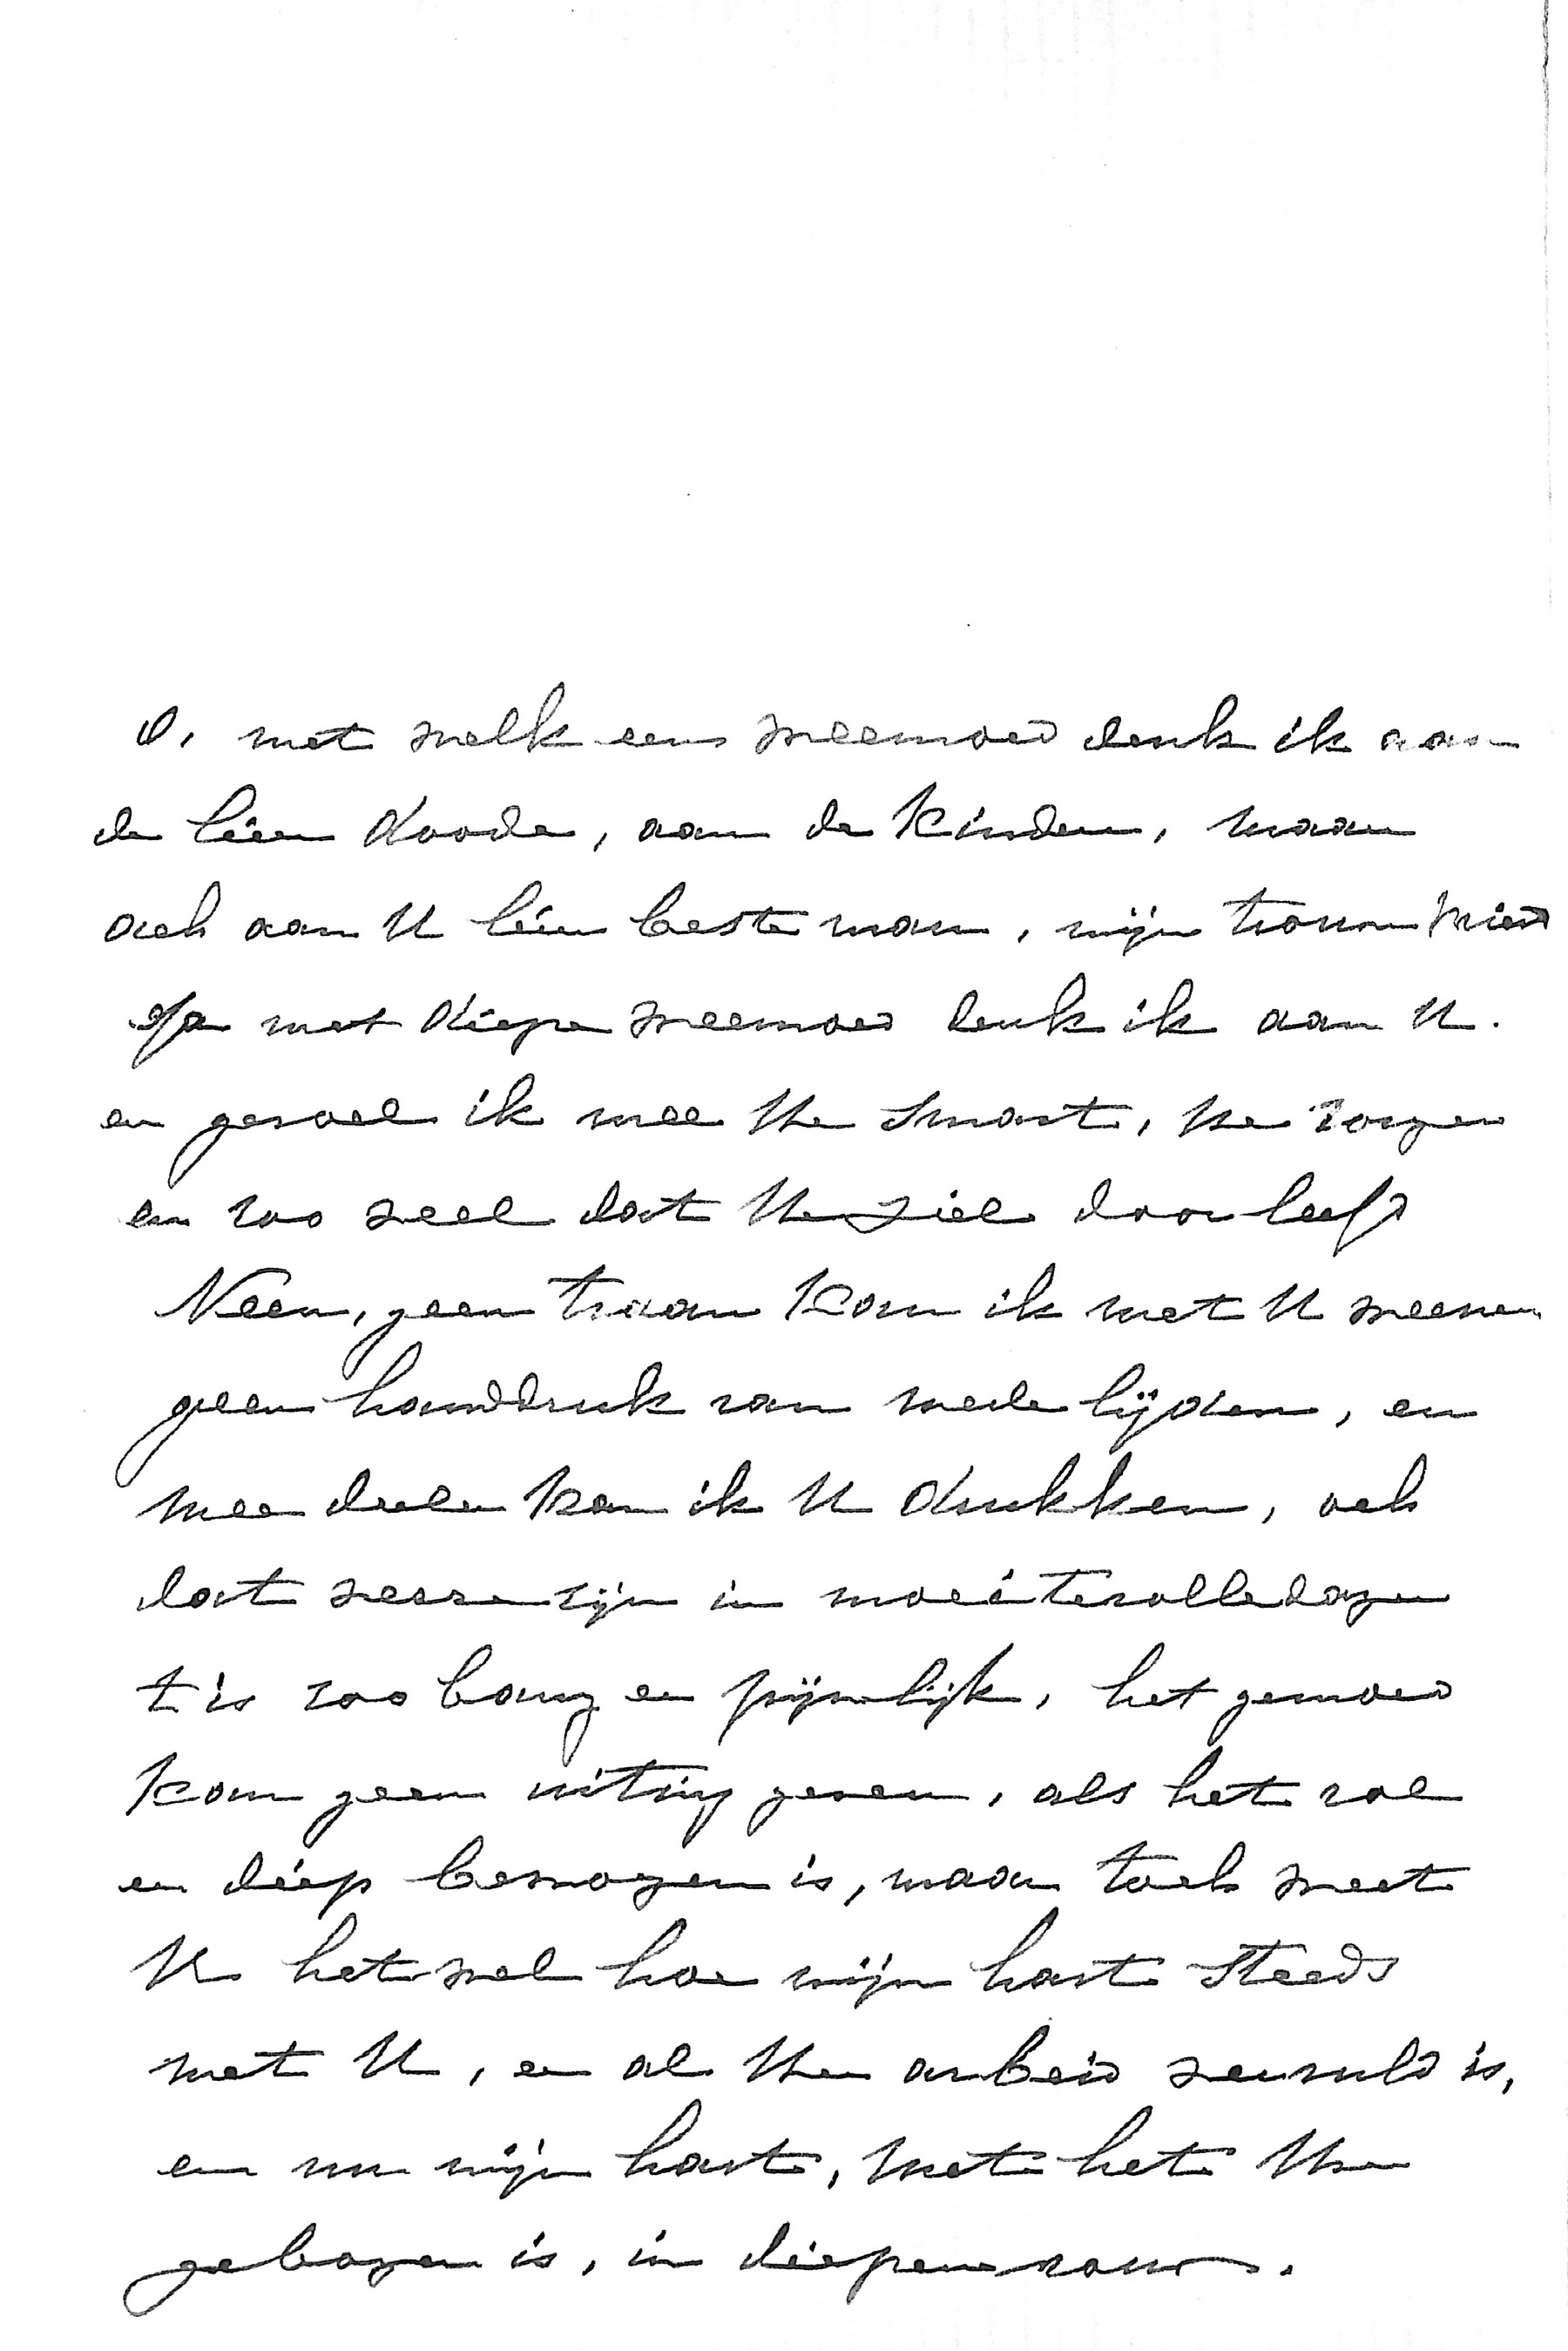 O, met welk een weemoed denk ik aan
de lieve doode, aan de kinderen, maar
ook aan U lieve beste man, mijn trouwe vriend
Ja met diepe weemoed denk ik aan U.
en gevoel ik mee Uw smart, Uw zorgen
en zoo veel dat Uw ziel doorleeft
Neen, geen traan kan ik met U weenen
geen handdruk van medelijden, en
mee deelen kan ik U drukken, och
dat verre zijn in moeitevolle dagen
t is zoo bang en pijnlijk, het gemoed
kan geen uiting geven, als het vol
en diep bewogen is, maar toch weet
U het wel hoe mijn hart steeds
met U, en al Uw arbeid vervuld is,
en nu mijn hart, met het Uwe
gebogen is, in diepen rouw.